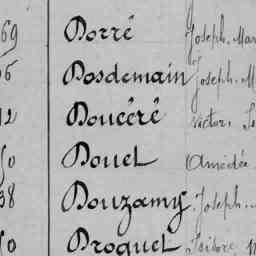 69 Dorré Joseph. Mar
Dosdemain Joseph. M
12 Doucéré Victor. Jo
50 Douet Amédée
38 Douzamy Joseph.
50 Droguet Isidore M